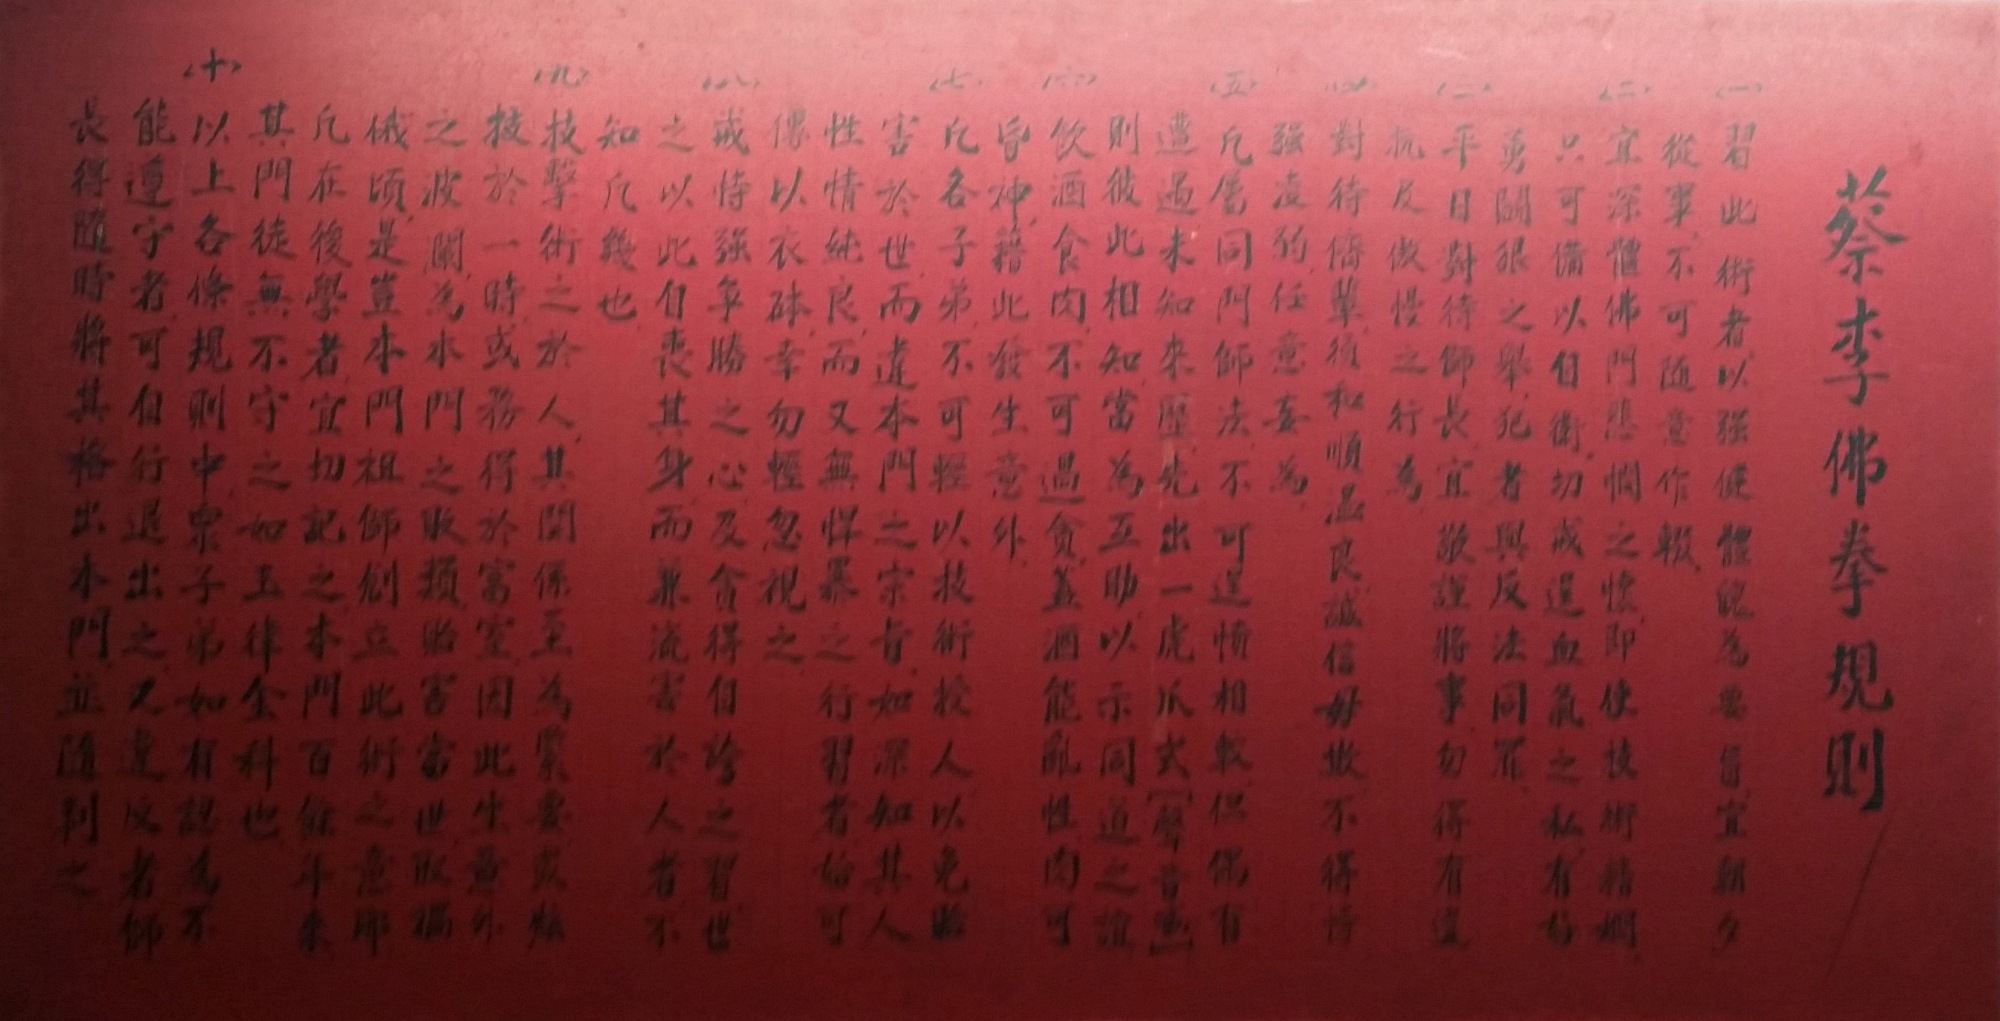 蔡李佛拳規則
(一)
習此術者以强健體魄為要旨宜朝夕
從事不可隨意作輟
(二)
宜深體佛門悲憫之懷即使技術精嫻
只可備以自衛切戒逞血氣之私有好
勇鬭狠之舉犯者與反法同罪
(三)
平日對待師長宜敬謹將事勿得有違
抗及傲慢之行為
(四)
對待儕輩須和順溫良誠信毋欺不得恃
强凌弱任意妄為
(五)
凡屬同門師法不可逞憤相較但偶有
遭過未知來歷先出一虎爪式
則彼此相知當為互助以示同道之誼
(六)
飲酒食肉不可過貪蓋酒能亂性肉可
昏神藉此發生意外
(七)
凡各子弟不可輕以技術授人以免貽
害於世而違本門之宗旨如深知其人
性情純良而又無悍暴之行習者始可
傳以衣砵幸勿輕忽視之
(八)
戒恃强争勝之心及貪得自誇之習世
之以此自喪其身而兼流害於人者不
知凡幾也
(九)
技擊術之於人其関係至為緊要或炫
技於一時或務得於富室因此生意外
之波闌為本門之敗類貽害當世取禍
俄頃是豈本門祖師創立此術之意耶
凡在後學者宜切記之本門百餘年來
其門徒無不守之如玉律金科也
(十)
以上各條規則中衆子弟如有認為不
能遵守者可自行退出之又違反者師
長得隨時將其格出本門並隨判之